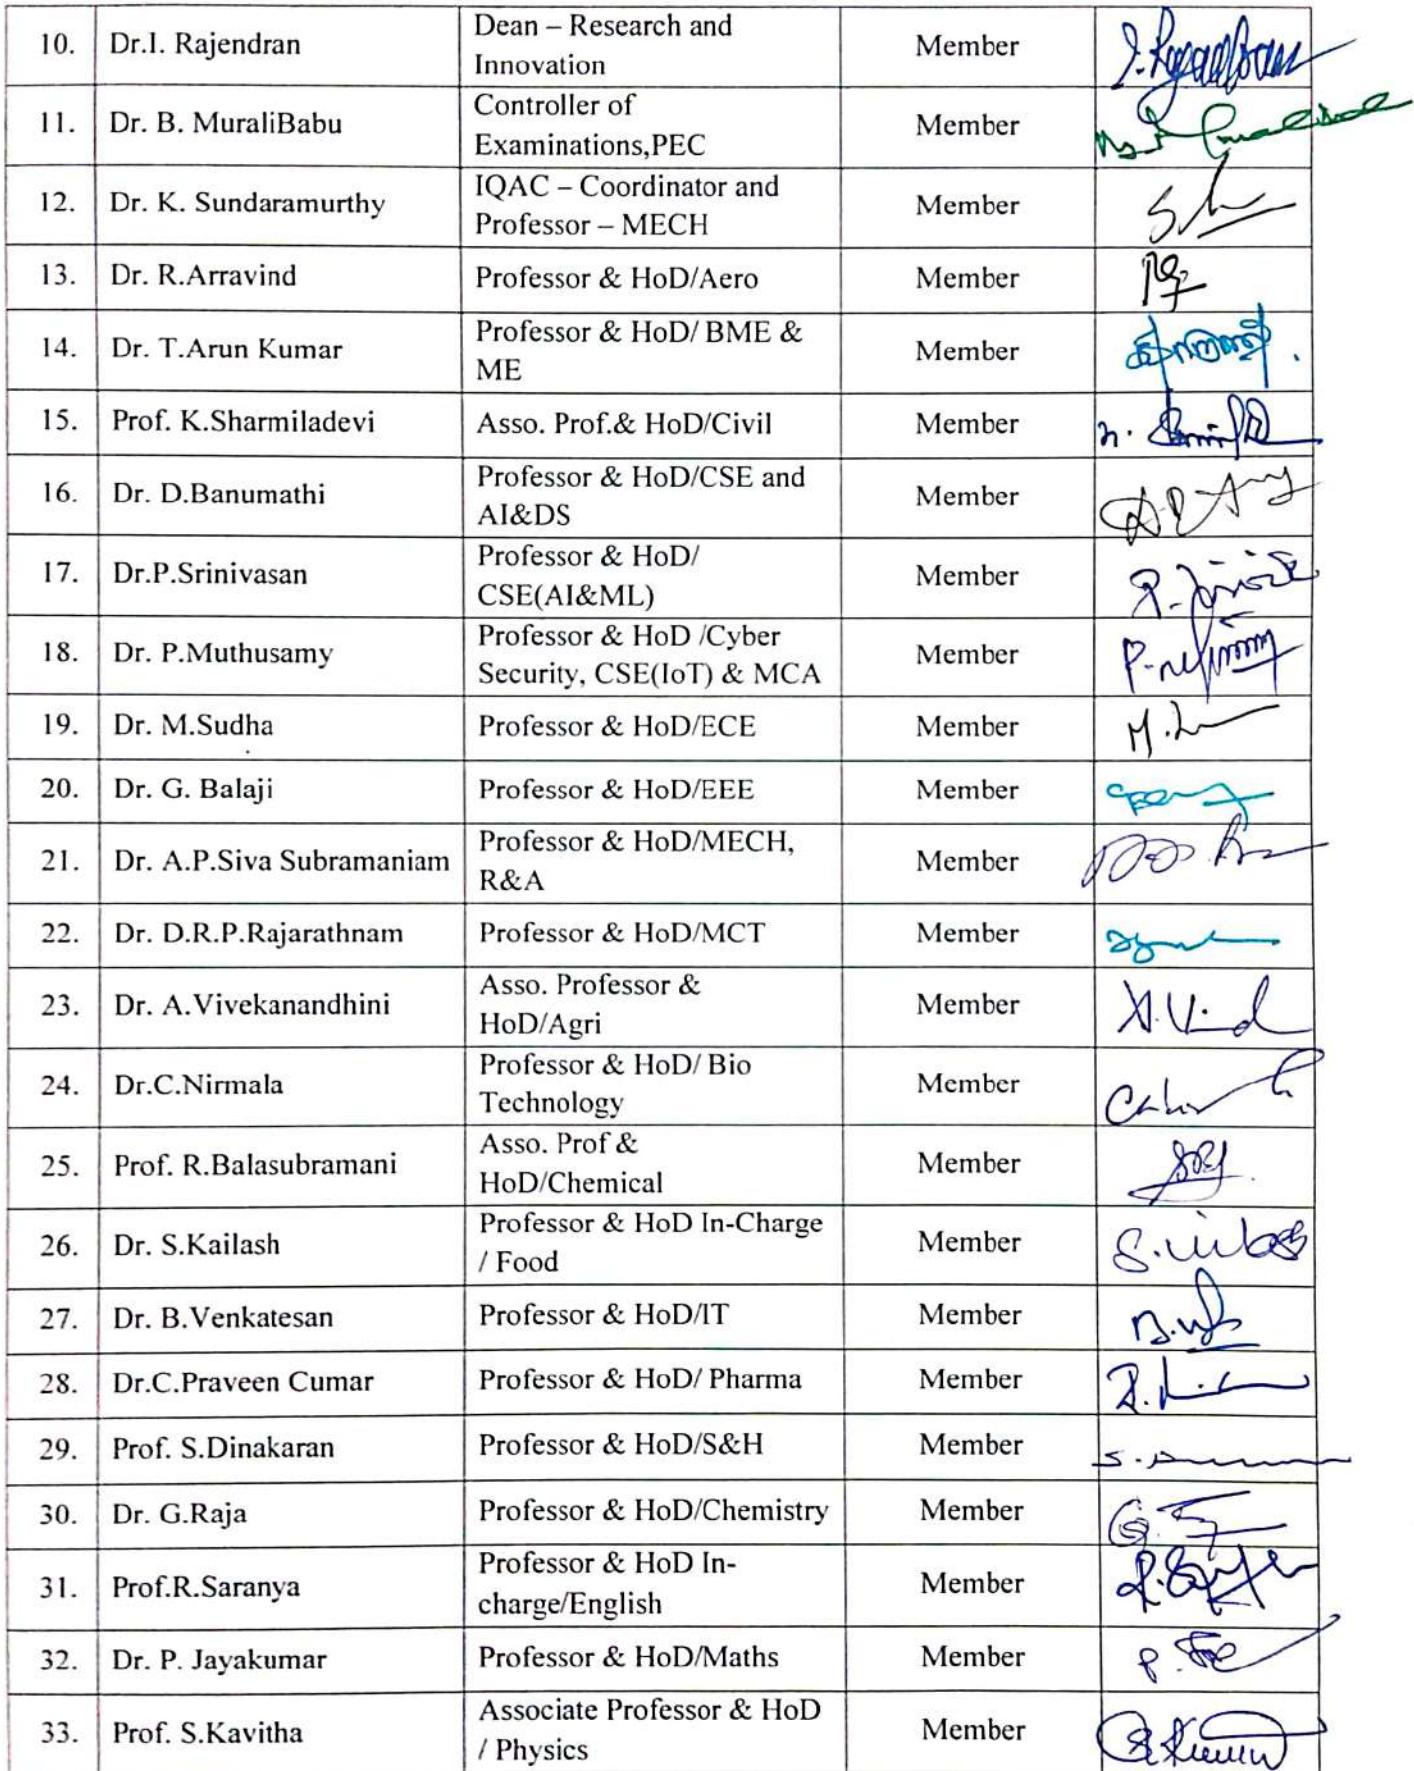 10. Dr.I. Rajendran Dean – Research and Member
Innovation
11. Dr. B. MuraliBabu Controller of Member
Examinations,PEC
12. Dr. K. Sundaramurthy IQAC – Coordinator and Member
Professor – MECH
13. Dr. R.Arravind Professor & HoD/Aero Member
14. Dr. T.Arun Kumar Professor & HoD/ BME & Member
ME
15. Prof. K.Sharmiladevi Asso. Prof.& HoD/Civil Member
16. Dr. D.Banumathi Professor & HoD/CSE and Member
AI&DS
17. Dr.P.Srinivasan Professor & HoD/ Member
CSE(AI&ML)
18. Dr. P.Muthusamy Professor & HoD /Cyber Member
Security, CSE(IoT) & MCA
19. Dr. M.Sudha Professor & HoD/ECE Member
20. Dr. G. Balaji Professor & HoD/EEE Member
21. Dr. A.P.Siva Subramaniam Professor & HoD/MECH, Member
R&A
22. Dr. D.R.P.Rajarathnam Professor & HoD/MCT Member
23. Dr. A.Vivekanandhini Asso. Professor & Member
HoD/Agri
24. Dr.C.Nirmala Professor & HoD/ Bio Member
Technology
25. Prof. R.Balasubramani Asso. Prof & Member
HoD/Chemical
26. Dr. S.Kailash Professor & HoD In-Charge Member
/ Food
27. Dr. B.Venkatesan Professor & HoD/IT Member
28. Dr.C.Praveen Cumar Professor & HoD/ Pharma Member
29. Prof. S.Dinakaran Professor & HoD/S&H Member
30. Dr. G.Raja Professor & HoD/Chemistry Member
31. Prof.R.Saranya Professor & HoD In- Member
charge/English
32. Dr. P. Jayakumar Professor & HoD/Maths Member
33. Prof. S.Kavitha Associate Professor & HoD Member
/ Physics